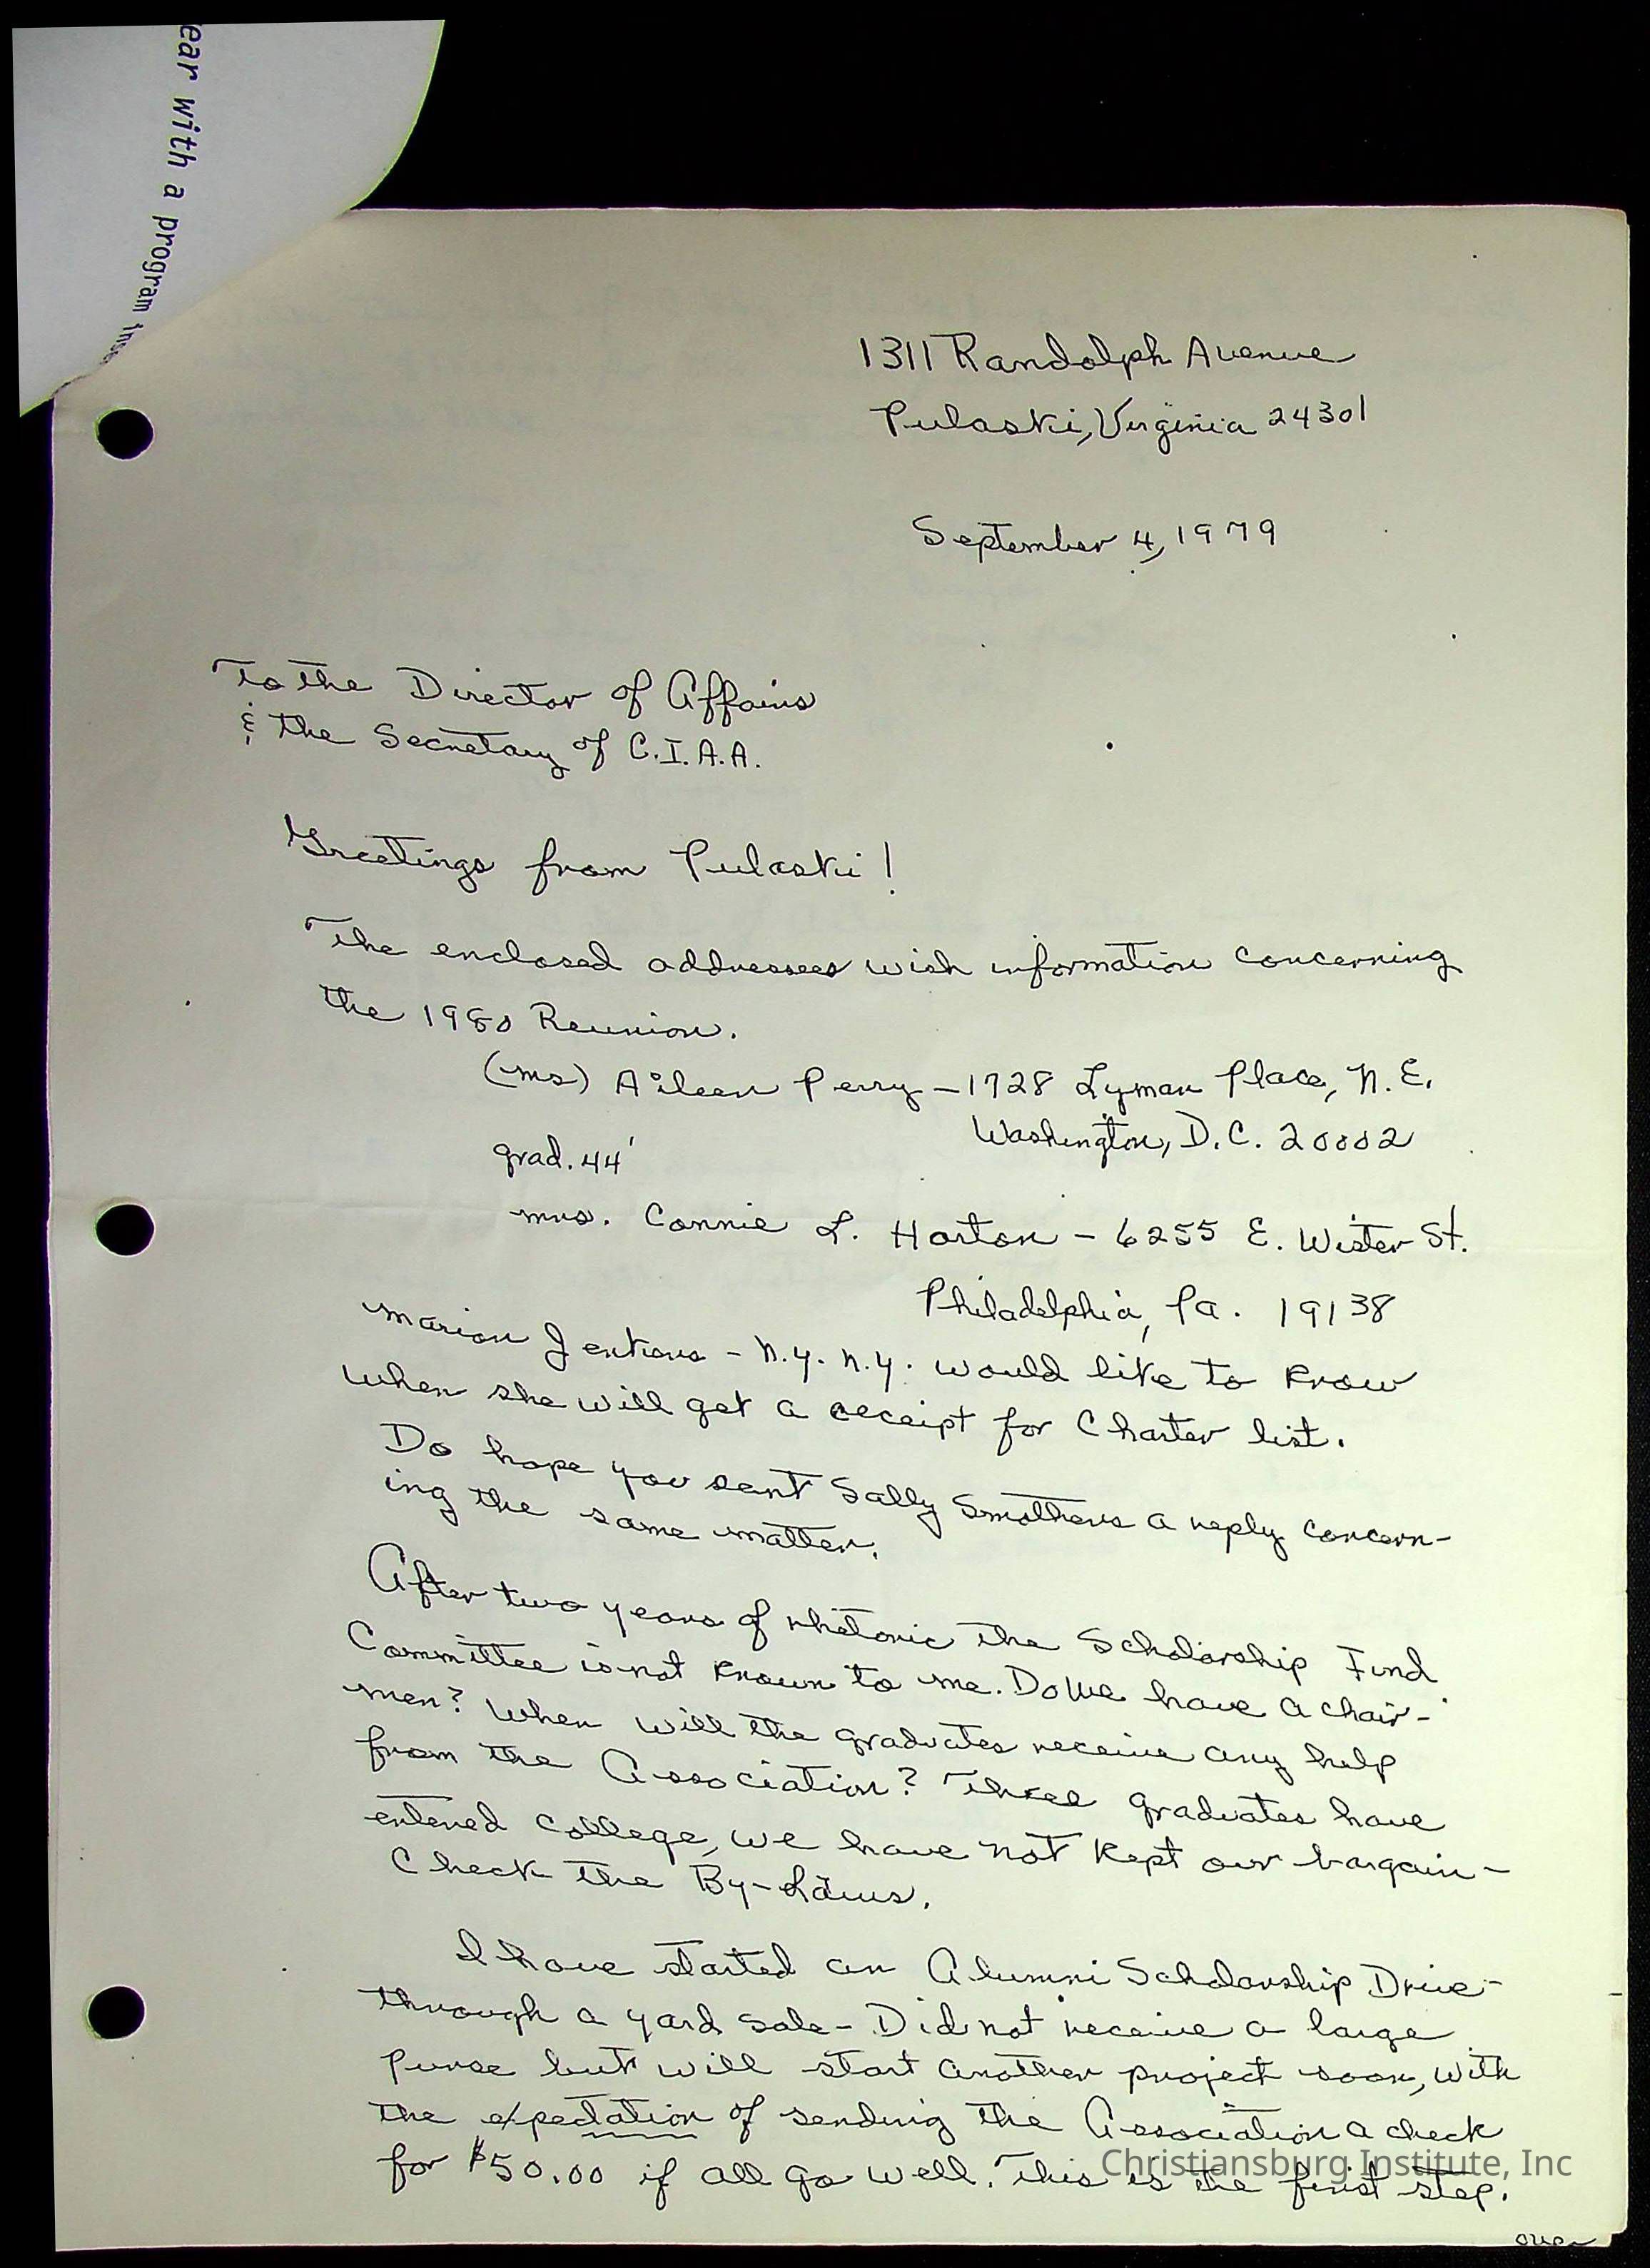 ear with a program inse
1311 Randolph Avenue
Pulaski, Virginia 24301
September 4, 1979
To the Director of Affairs
& the Secretary of C.I.A.A.
Greetings from Pulaski!
The enclosed addressees wish information concerning
the 1980 Reunion.
(Ms) Aileen Perry - 1728 Lyman Place, N.E.
Washington, D.C. 20002
grad. 44'
Mrs. Connie L. Horton - 6255 E. Wister St.
Philadelphia, Pa. 19138
Marion Jenkins - N.Y. N.Y. would like to know
when she will get a receipt for Charter list.
Do hope you sent Sally Smothers a reply concern-
ing the same matter.
After two years of rhetoric the Scholarship Fund
Committee is not known to me. Do We have a chair-
men? When will the graduates receive any help
from the Association? Three graduates have
entered college, we have not kept our bargain -
Check the By-Laws.
I have started an Alumni Scholarship Drive -
through a yard sale - Did not receive a large
purse but will start another project soon, with
the expectation of sending the Association a check
for $50.00 if all go well. This is the first step.
Christiansburg Institute, Inc
over